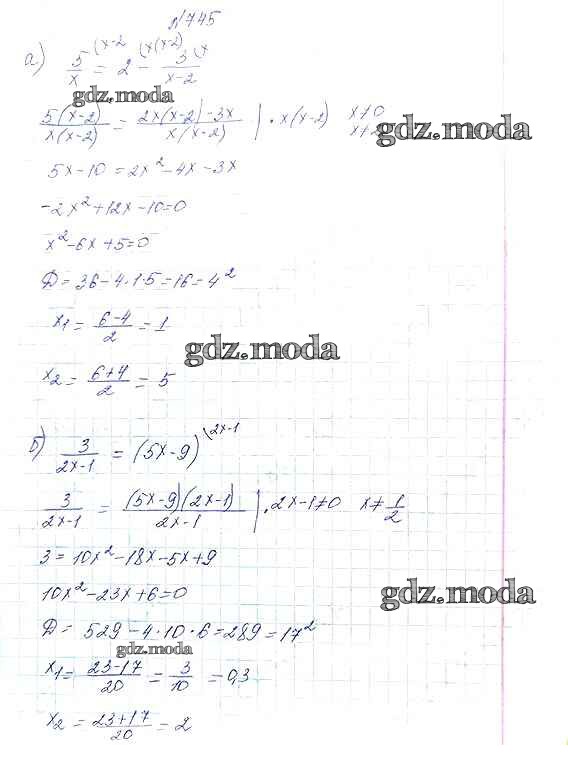 №745
а) 5/x (x-2 = 2 (x(x-2) - 3/(x-2) (x
gdz.moda
5(x-2)/x(x-2) = 2x(x-2)-3x/x(x-2) | · x(x-2) x≠0
x≠2
gdz.moda
5x-10 = 2x²-4x-3x
-2x²+12x-10=0
x²-6x+5=0
Д=36-4·1·5=16=4²
x1 = (6-4)/2 = 1
gdz.moda
x2 = (6+4)/2 = 5
б) 3/(2x-1) = (5x-9) (2x-1
3/(2x-1) = (5x-9)(2x-1)/(2x-1) | · 2x-1≠0 x≠1/2
3=10x²-18x-5x+9
10x²-23x+6=0
gdz.moda
Д= 529-4·10·6=289=17²
gdz.moda
x1= (23-17)/20 = 3/10 = 0,3
x2 = (23+17)/20 = 2